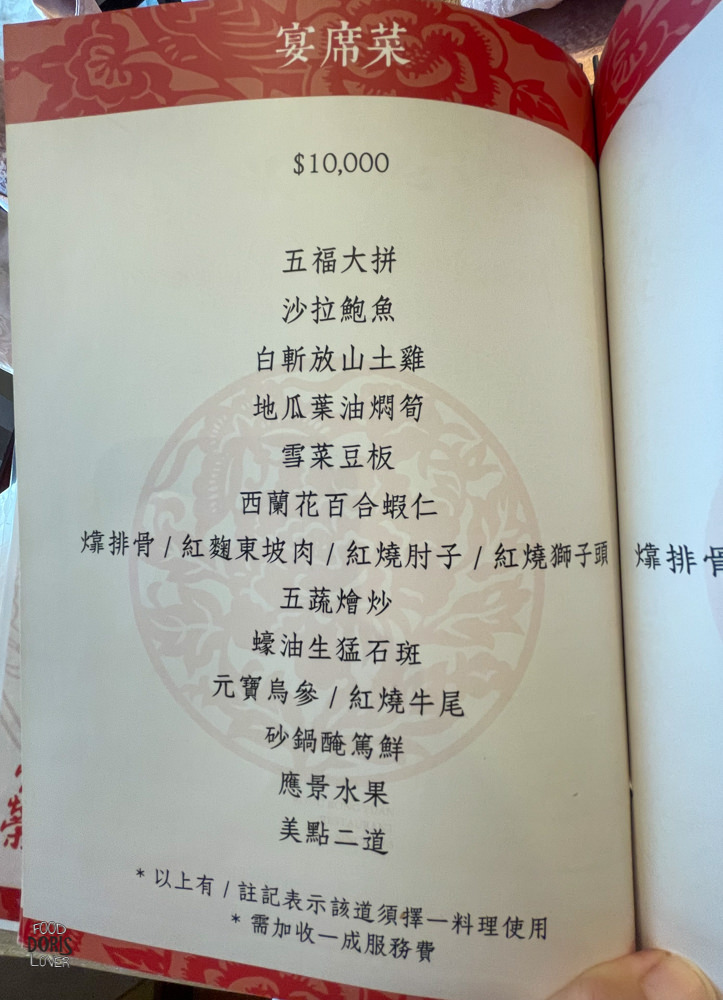 宴席菜
$10,000
五福大拼
沙拉鮑魚
白斬放山土雞
地瓜葉油燜筍
雪菜豆板
西蘭花百合蝦仁
㸆排骨 / 紅麴東坡肉 / 紅燒肘子 / 紅燒獅子頭
五蔬燴炒
蠔油生猛石斑
元寶烏參 / 紅燒牛尾
砂鍋醃篤鮮
應景水果
美點二道
* 以上有 / 註記表示該道須擇一料理使用
* 需加收一成服務費
㸆排骨
FOOD
DORIS
LOVER